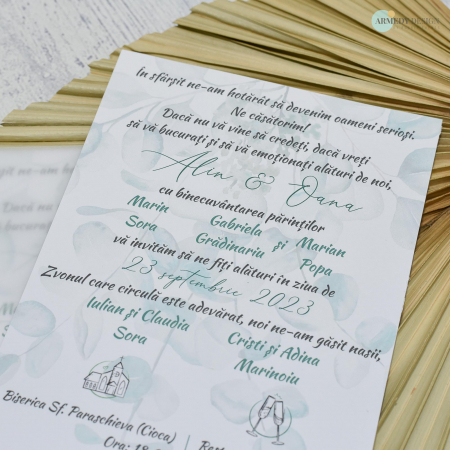 ARMEDY DESIGN
În sfârșit ne-am hotărât să devenim oameni serioși.
Ne căsătorim!
Dacă nu vă vine să credeți, dacă vreți
să vă bucurați și să vă emoționați alături de noi,
Alin & Oana
cu binecuvântarea părinților
Marin Gabriela și Marian
Sora Grădinariu Popa
vă invităm să ne fiți alături în ziua de
23 septembrie 2023
Zvonul care circulă este adevărat, noi ne-am găsit nașii,
Iulian și Claudia Cristi și Adina
Sora Marinoiu
Biserica Sf. Paraschieva (Cioca)
Ora: